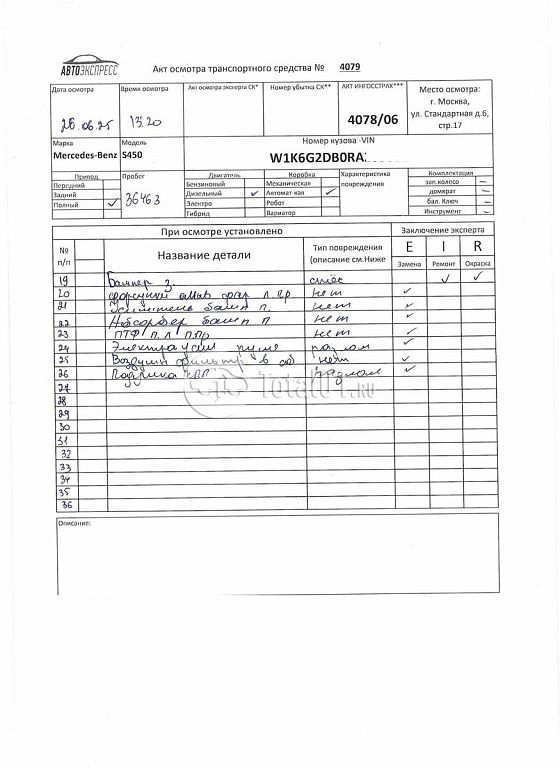 АВТОЭКСПРЕСС
Акт осмотра транспортного средства № 4079
Дата осмотра
26.06.25
Время осмотра
13.20
Акт осмотра эксперта СК*
Номер убытка СК**
АКТ ИНГОССТРАХ***
4078/06
Место осмотра:
г. Москва,
ул. Стандартная д.6,
стр.17
Марка
Mercedes-Benz
Модель
S450
Номер кузова -VIN
W1K6G2DB0RA
Привод
Передний
Задний
Полный ✓
Пробег
36463
Двигатель
Бензиноный
Дизельный ✓
Электро
Гибрид
Коробка
Механическая
Автомат кая ✓
Робот
Вариатор
Характеристика
повреждения
Комплектация
зап.колесо –
домкрат –
бал. Ключ –
Инструмент –
При осмотре установлено
Заключение эксперта
№
п/п
Название детали
Тип повреждения
(описание см.Ниже
E I R
Замена Ремонт Окраска
19 Бампер з. ✓ ✓
20 форсунки фар л. пр нет ✓
21 Усилитель бамп п. нет ✓
22 Абсорбер бамп п нет ✓
23 ПТФ п. л п.пр нет ✓
24 Электроусил руля разлом ✓
25 Воздушн фильтр в сб нет ✓
26 разлом ✓
27
28
29
30
31
32
33
34
35
36
Total01.RU
Описание: